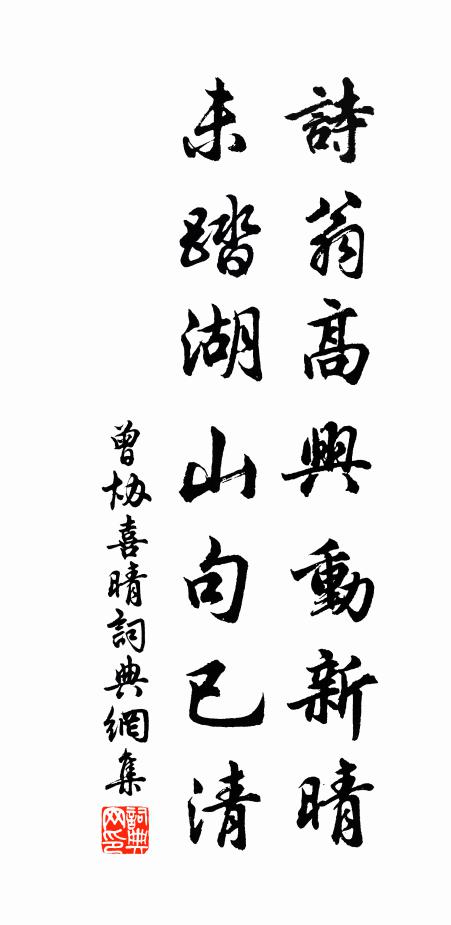 詩翁高興動新晴
未踏湖山句已清
曾协喜晴詞典網集
詞典网印